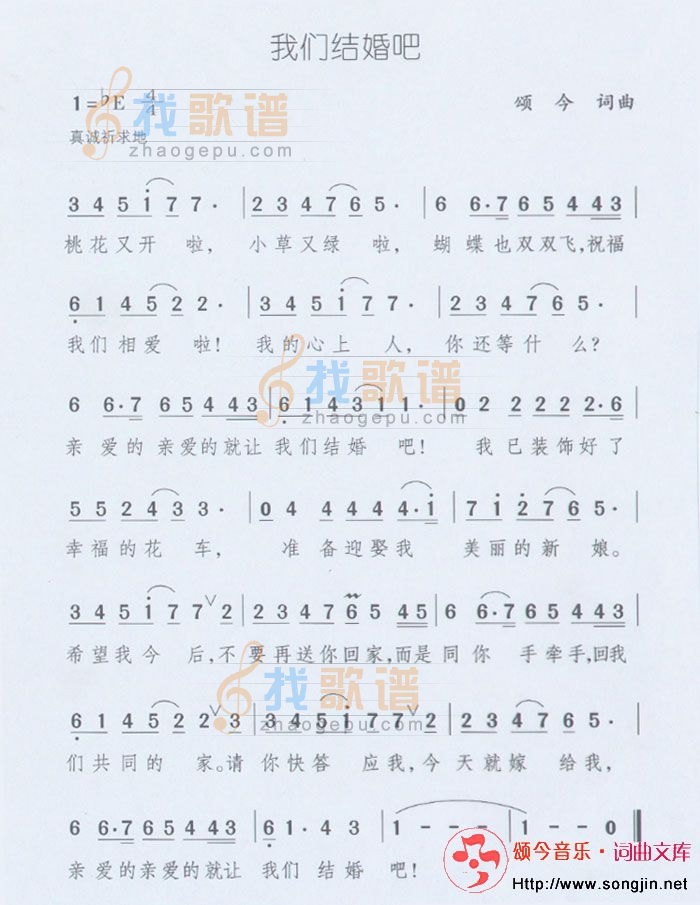 我们结婚吧
1=♭E 4/4
颂今 词曲
真诚祈求地
找歌谱
zhaogepu.com
3 4 5 i 7 7· | 2 3 4 7 6 5· | 6 6·7 6 5 4 4 3 |
桃花又开 啦, 小草又绿 啦, 蝴蝶也双双飞,祝福
6 1 4 5 2 2· | 3 4 5 i 7 7· | 2 3 4 7 6 5· |
我们相爱 啦! 我的心上 人, 你还等什 么?
找歌谱
zhaogepu.com
6 6·7 6 5 4 4 3 | 6 1 4 3 1 1· | 0 2 2 2 2 2·6 |
亲 爱的 亲爱的就让 我们结婚 吧! 我已装饰好了
5 5 2 4 3 3· | 0 4 4 4 4 4·i | 7 i 2 7 6 5· |
幸福的花 车, 准备迎娶我 美丽的新 娘。
3 4 5 i 7 7 ∨ 2 | 2 3 4 7 6 6 5 4 5 | 6 6·7 6 5 4 4 3 |
希望我今 后,不 要再送你回家,而是同你 手牵手,回我
找歌谱
zhaogepu.com
6 1 4 5 2 2 ∨ 3 | 3 4 5 i 7 7 ∨ 2 | 2 3 4 7 6 5· |
们共同的 家。请 你快答 应我,今 天就嫁 给我,
6 6·7 6 5 4 4 3 | 6 1·4 3 | 1 - - - | 1 - - 0 ‖
亲 爱的亲爱的就让 我们 结婚 吧!
颂今音乐·词曲文库
Http://www.songjin.net